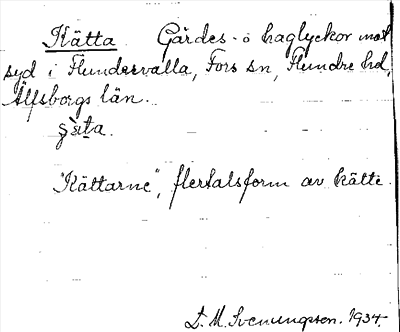 Kätta Gärdes- o haglyckor mot
syd i Flundersvalla, Fors sn, Flundre hd,
Älfsborgs län.
"Kättarne", flertalsform av kätte.
D. M. Svenungsson. 1934.